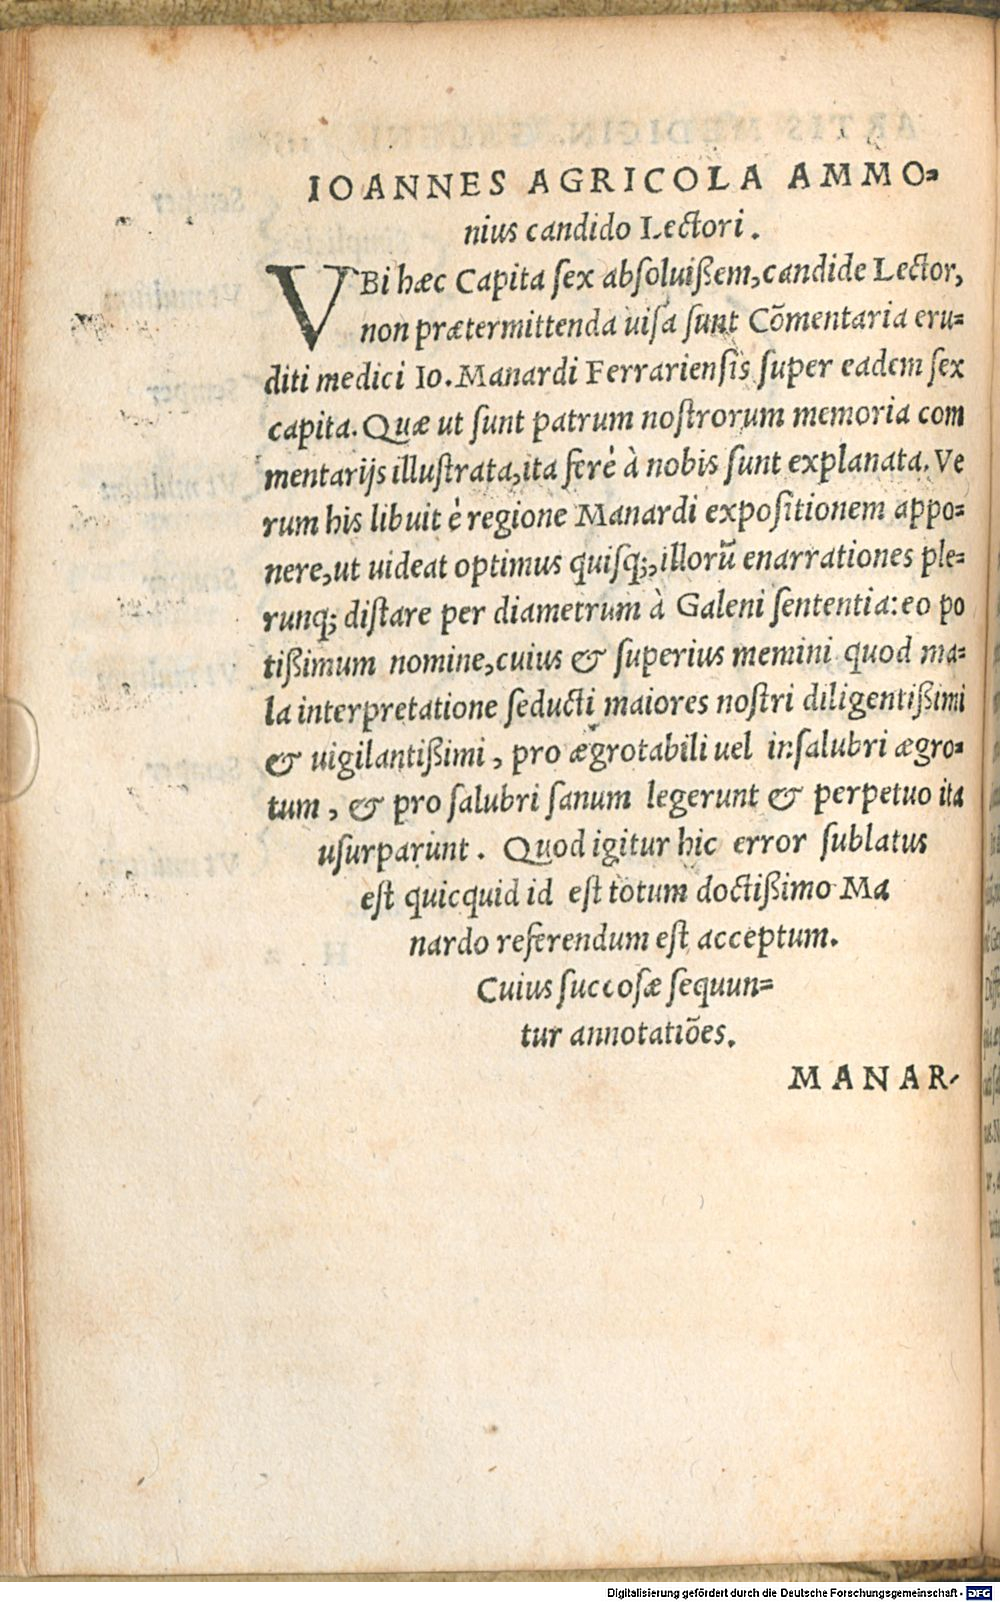 IOANNES AGRICOLA AMMO⸗
nius candido Lectori.
VBi hæc Capita sex absoluißem, candide Lector,
non prætermittenda uisa sunt Cōmentaria eru⸗
diti medici Io. Manardi Ferrariensis super eadem sex
capita. Quæ ut sunt patrum nostrorum memoria com
mentarijs illustrata, ita ferè à nobis sunt explanata. Ve
rum his libuit è regione Manardi expositionem appo⸗
nere, ut uideat optimus quisq;, illorū enarrationes ple⸗
runq; distare per diametrum à Galeni sententia: eo po
tißimum nomine, cuius & superius memini quod ma⸗
la interpretatione seducti maiores nostri diligentißimi
& uigilantißimi, pro ægrotabili uel insalubri ægro⸗
tum, & pro salubri sanum legerunt & perpetuo ita
usurparunt. Quod igitur hic error sublatus
est quicquid id est totum doctißimo Ma
nardo referendum est acceptum.
Cuius succosæ sequun⸗
tur annotatiōes.
MANAR-
Digitalisierung gefördert durch die Deutsche Forschungsgemeinschaft - DFG